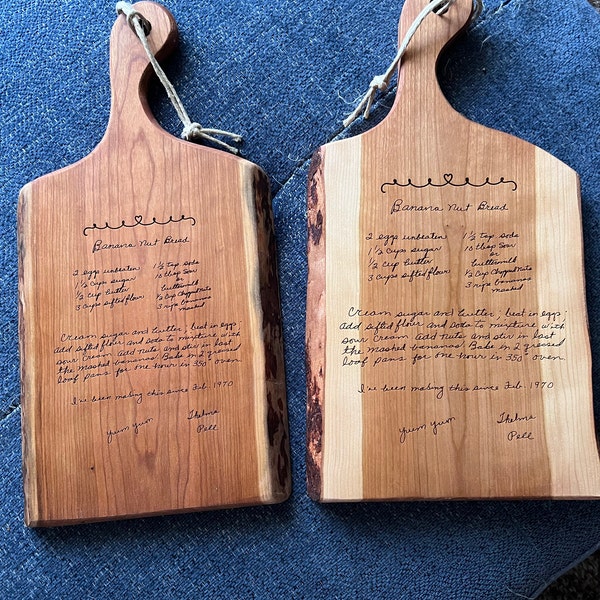 Banana Nut Bread
2 eggs unbeaten
1 1/2 Cups sugar
1/2 Cup butter
3 cups sifted flour
1 1/2 tsp soda
10 tbsp Sour
or
buttermilk
1/2 Cup Chopped Nuts
3 ripe bananas
mashed
Cream sugar and butter; beat in eggs;
add sifted flour and soda to mixture with
sour cream add nuts and stir in last
the mashed bananas. Bake in 2 greased
loaf pans for one hour in 350° oven.
I've been making this since Feb. 1970
yum yum
Thelma
Pell
Banana Nut Bread
2 eggs unbeaten
1 1/2 Cups sugar
1/2 Cup butter
3 Cups sifted flour
1 1/2 tsp soda
10 tbsp Sour
or
buttermilk
1/2 Cup Chopped Nuts
3 ripe bananas
mashed
Cream sugar and butter; beat in eggs;
add sifted flour and soda to mixture with
sour cream add nuts and stir in last
the mashed bananas. Bake in 2 greased
loaf pans for one hour in 350° oven.
I've been making this since Feb. 1970
yum yum
Thelma
Pell